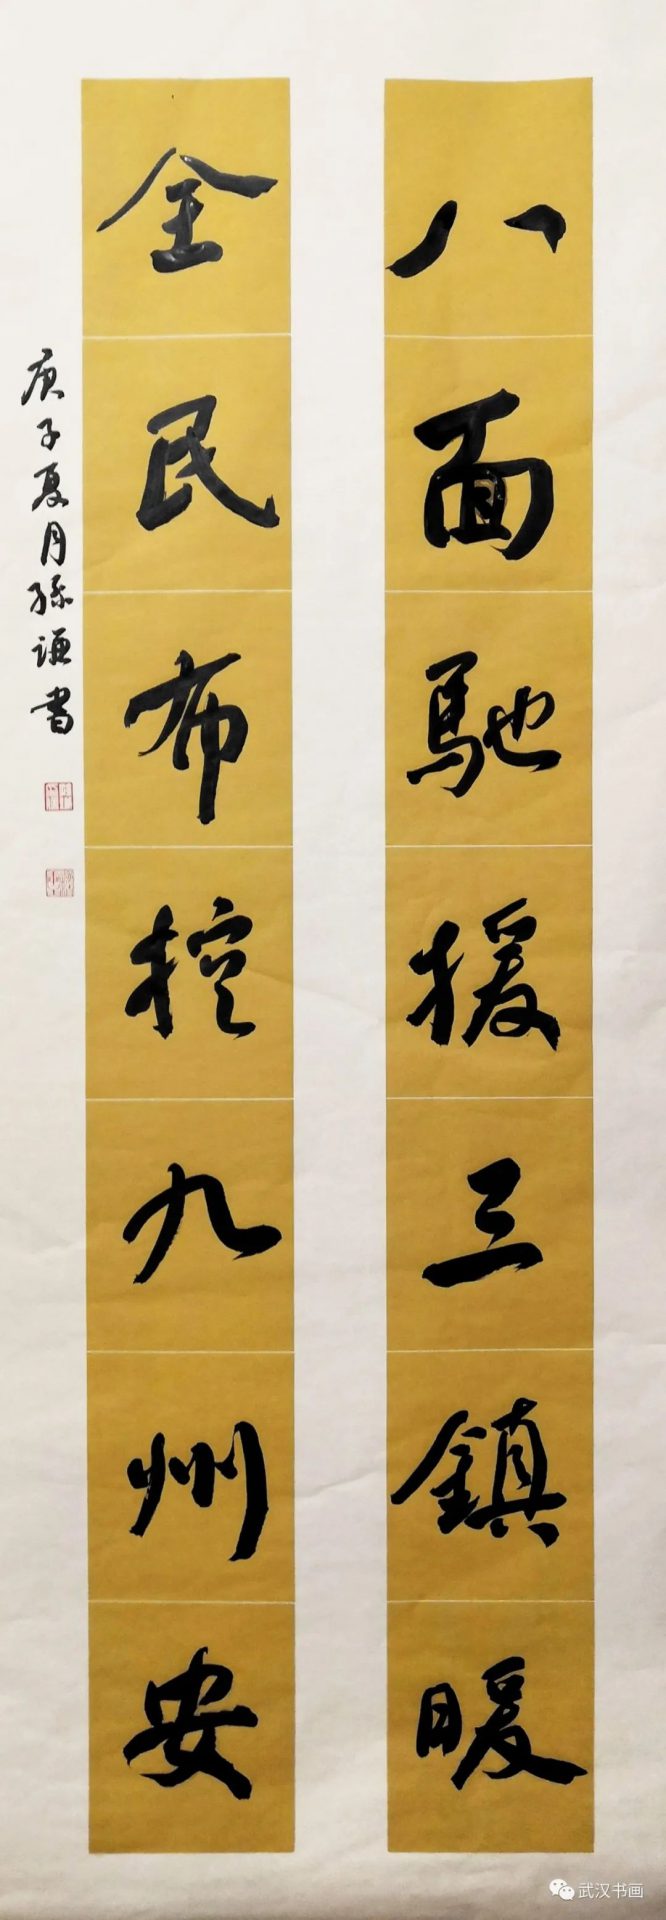 八面馳援三鎮暖
全民布控九州安
庚子夏月孫謙書
武汉书画